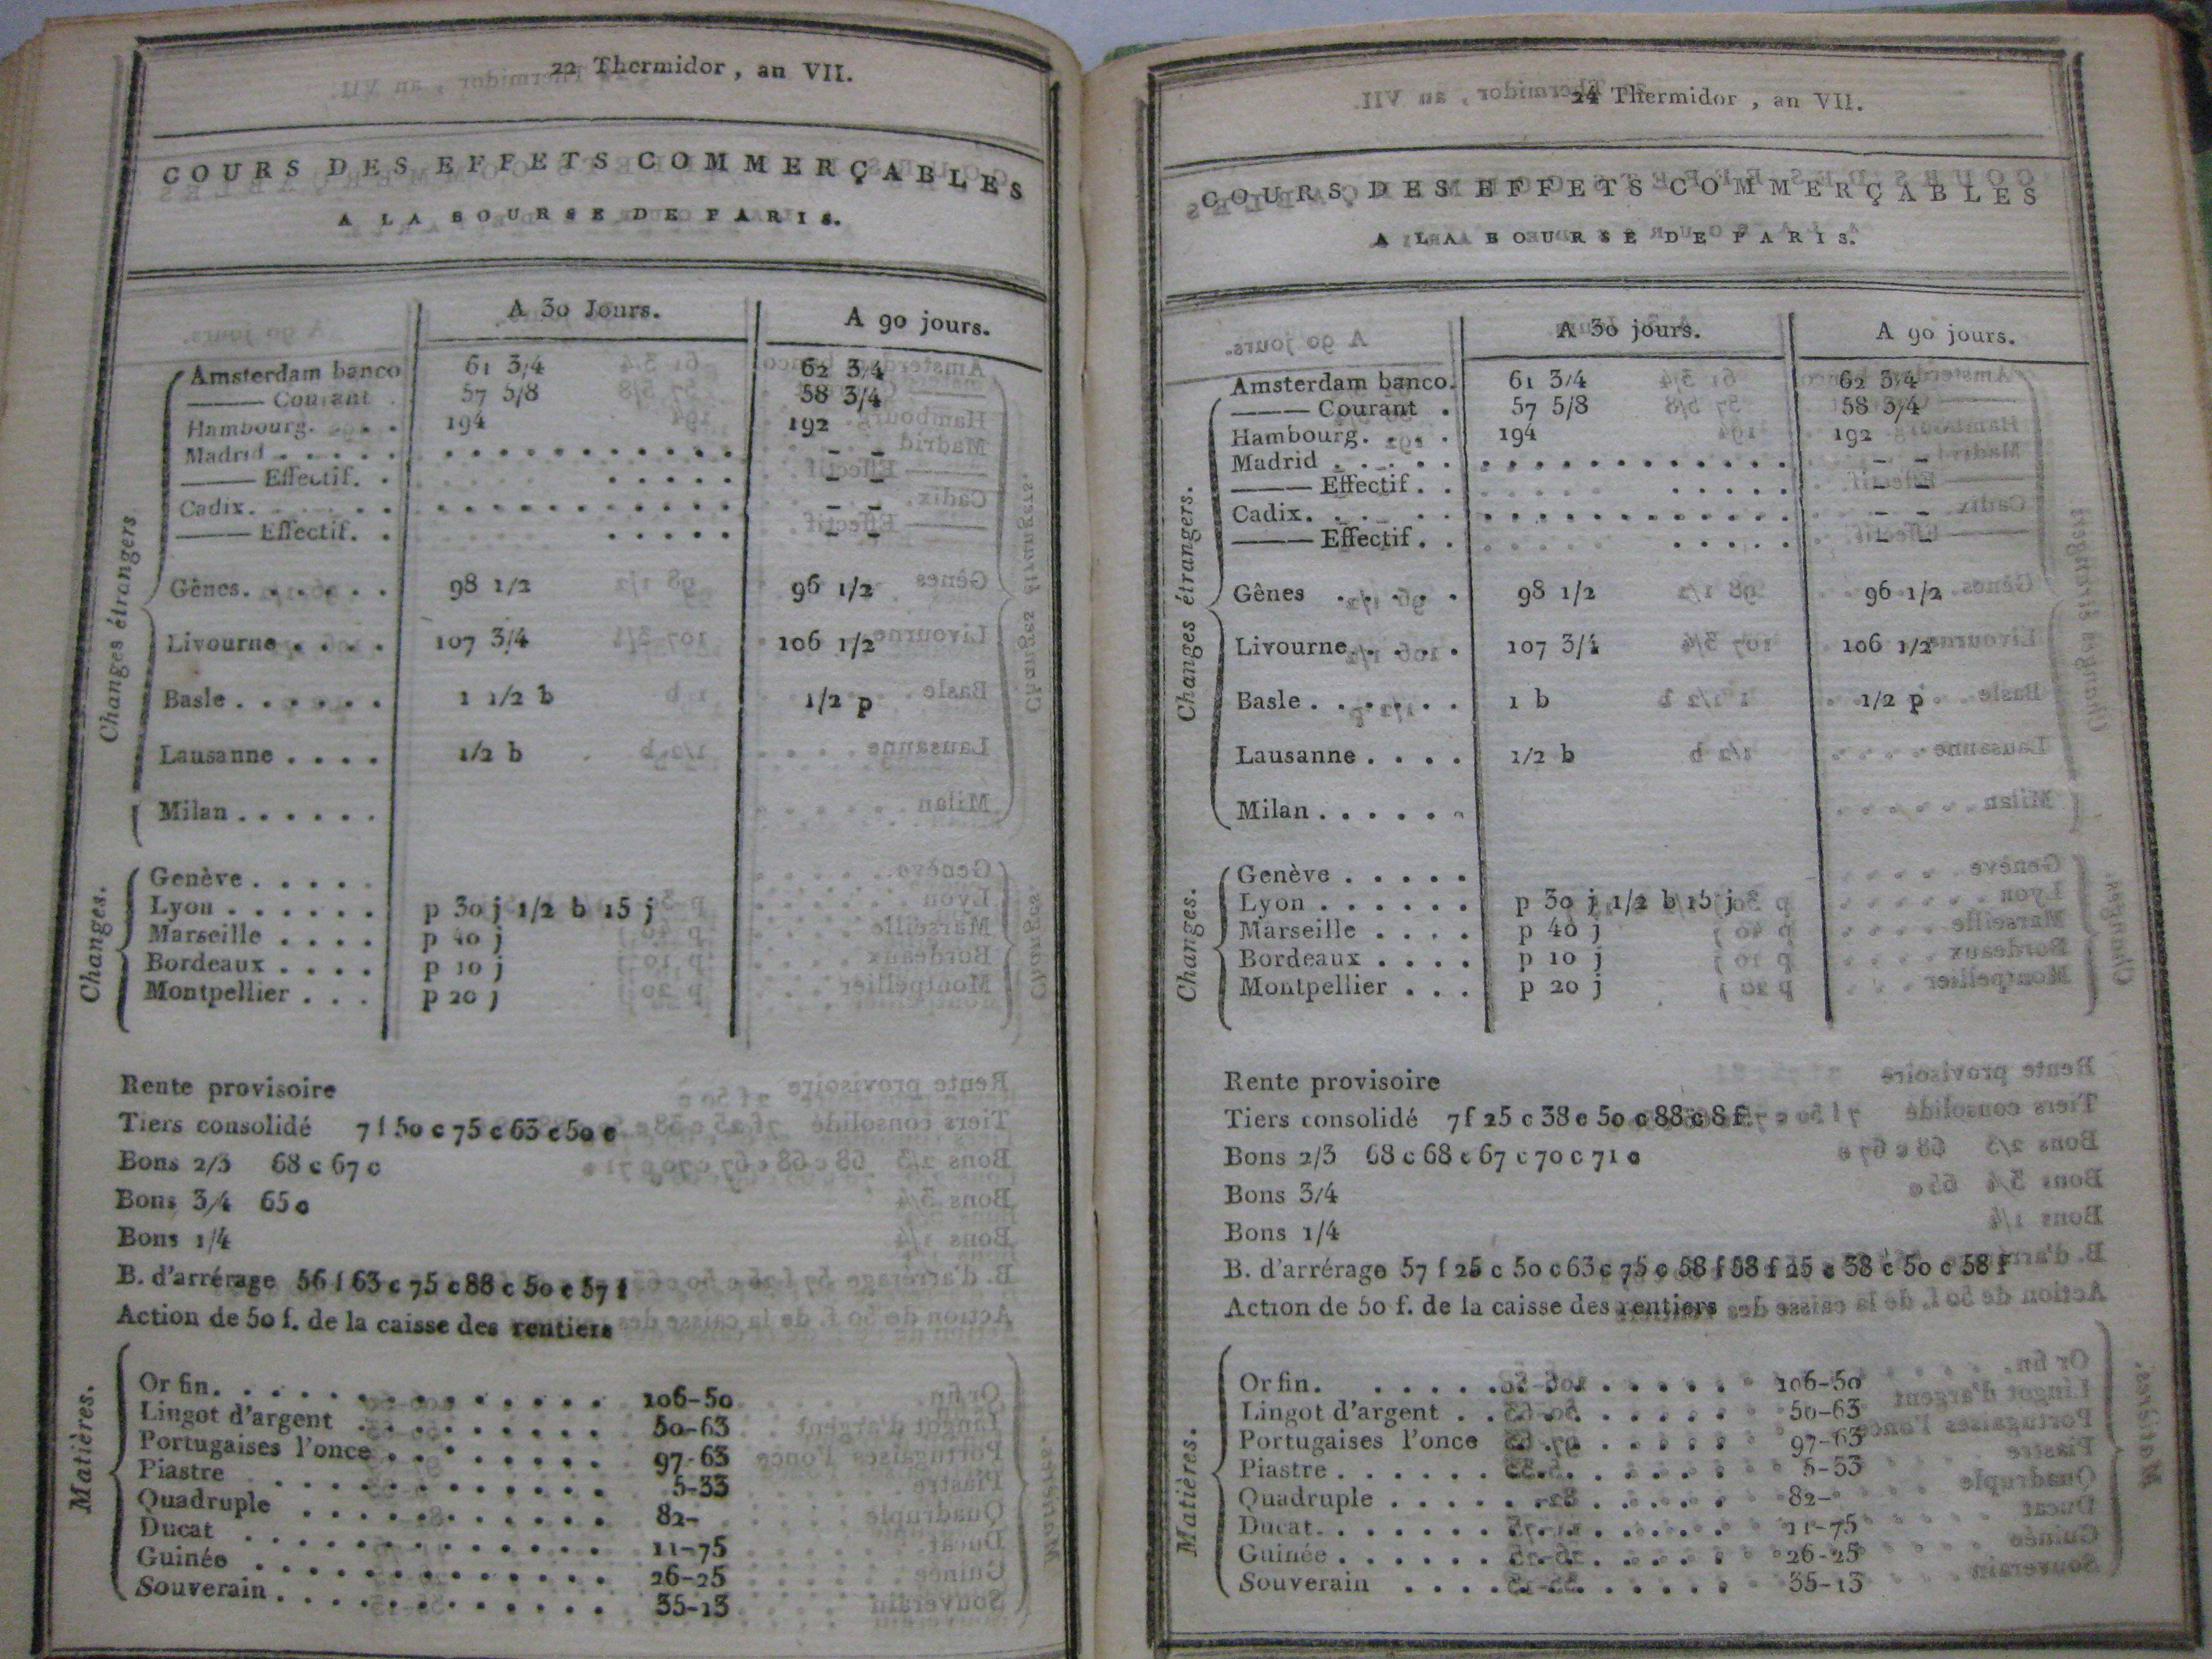 22 Thermidor, an VII.
COURS DES EFFETS COMMERÇABLES
A LA BOURSE DE PARIS.
A 30 Jours. A 90 jours.
Changes étrangers
Amsterdam banco 61 3/4 62 3/4
——— Courant . 57 5/8 58 3/4
Hambourg. . . . 194 192
Madrid . . . . . . . . . . . . . . . . – –
——— Effectif. . . . . . . – –
Cadix. . . . . . . . . . . . . . . . . – –
——— Effectif. . . . . . . – –
Gênes. . . . . . 98 1/2 96 1/2
Livourne . . . . 107 3/4 106 1/2
Basle . . . . . . 1 1/2 b 1/2 p
Lausanne . . . . 1/2 b
Milan . . . . . .
Changes.
Genève . . . . .
Lyon . . . . . . p 30 j 1/2 b 15 j
Marseille . . . . p 40 j
Bordeaux . . . . p 10 j
Montpellier . . . p 20 j
Rente provisoire
Tiers consolidé 7 f 50 c 75 c 63 c 50 c
Bons 2/3 68 c 67 c
Bons 3/4 65 c
Bons 1/4
B. d'arrérage 56 f 63 c 75 c 88 c 50 c 57 f
Action de 50 f. de la caisse des rentiers
Matières.
Or fin. . . . . . . . . . . . . . 106-50
Lingot d'argent . . . . . . . . . 50-63
Portugaises l'once . . . . . . . . 97-63
Piastre . . . . . . . . . . . . 5-33
Quadruple . . . . . . . . . . . 82-
Ducat . . . . . . . . . . . . . 11-75
Guinée . . . . . . . . . . . . . 26-25
Souverain . . . . . . . . . . . . 35-13
24 Thermidor, an VII.
COURS DES EFFETS COMMERÇABLES
A LA BOURSE DE PARIS.
A 30 jours. A 90 jours.
Changes étrangers.
Amsterdam banco. 61 3/4 62 3/4
——— Courant . 57 5/8 58 3/4
Hambourg. . . . 194 192
Madrid . . . . . . . . . . . . . . . . – –
——— Effectif . . . . . . . – –
Cadix. . . . . . . . . . . . . . . . . – –
——— Effectif . . . . . . . – –
Gênes . . . . . 98 1/2 96 1/2
Livourne. . . . . 107 3/4 106 1/2
Basle . . . . . . 1 b 1/2 p
Lausanne . . . . 1/2 b
Milan . . . . . .
Changes.
Genève . . . . .
Lyon . . . . . . p 30 j 1/2 b 15 j
Marseille . . . . p 40 j
Bordeaux . . . . p 10 j
Montpellier . . . p 20 j
Rente provisoire
Tiers consolidé 7 f 25 c 38 c 50 c 88 c 8 f
Bons 2/3 68 c 68 c 67 c 70 c 71 c
Bons 3/4
Bons 1/4
B. d'arrérage 57 f 25 c 50 c 63 c 75 c 58 f 58 f 25 c 38 c 50 c 58 f
Action de 50 f. de la caisse des rentiers
Matières.
Or fin. . . . . . . . . . . . . 106-50
Lingot d'argent . . . . . . . . . 50-63
Portugaises l'once . . . . . . . 97-63
Piastre . . . . . . . . . . . . . 5-33
Quadruple . . . . . . . . . . . 82-
Ducat. . . . . . . . . . . . . . 11-75
Guinée . . . . . . . . . . . . . 26-25
Souverain . . . . . . . . . . . 35-13